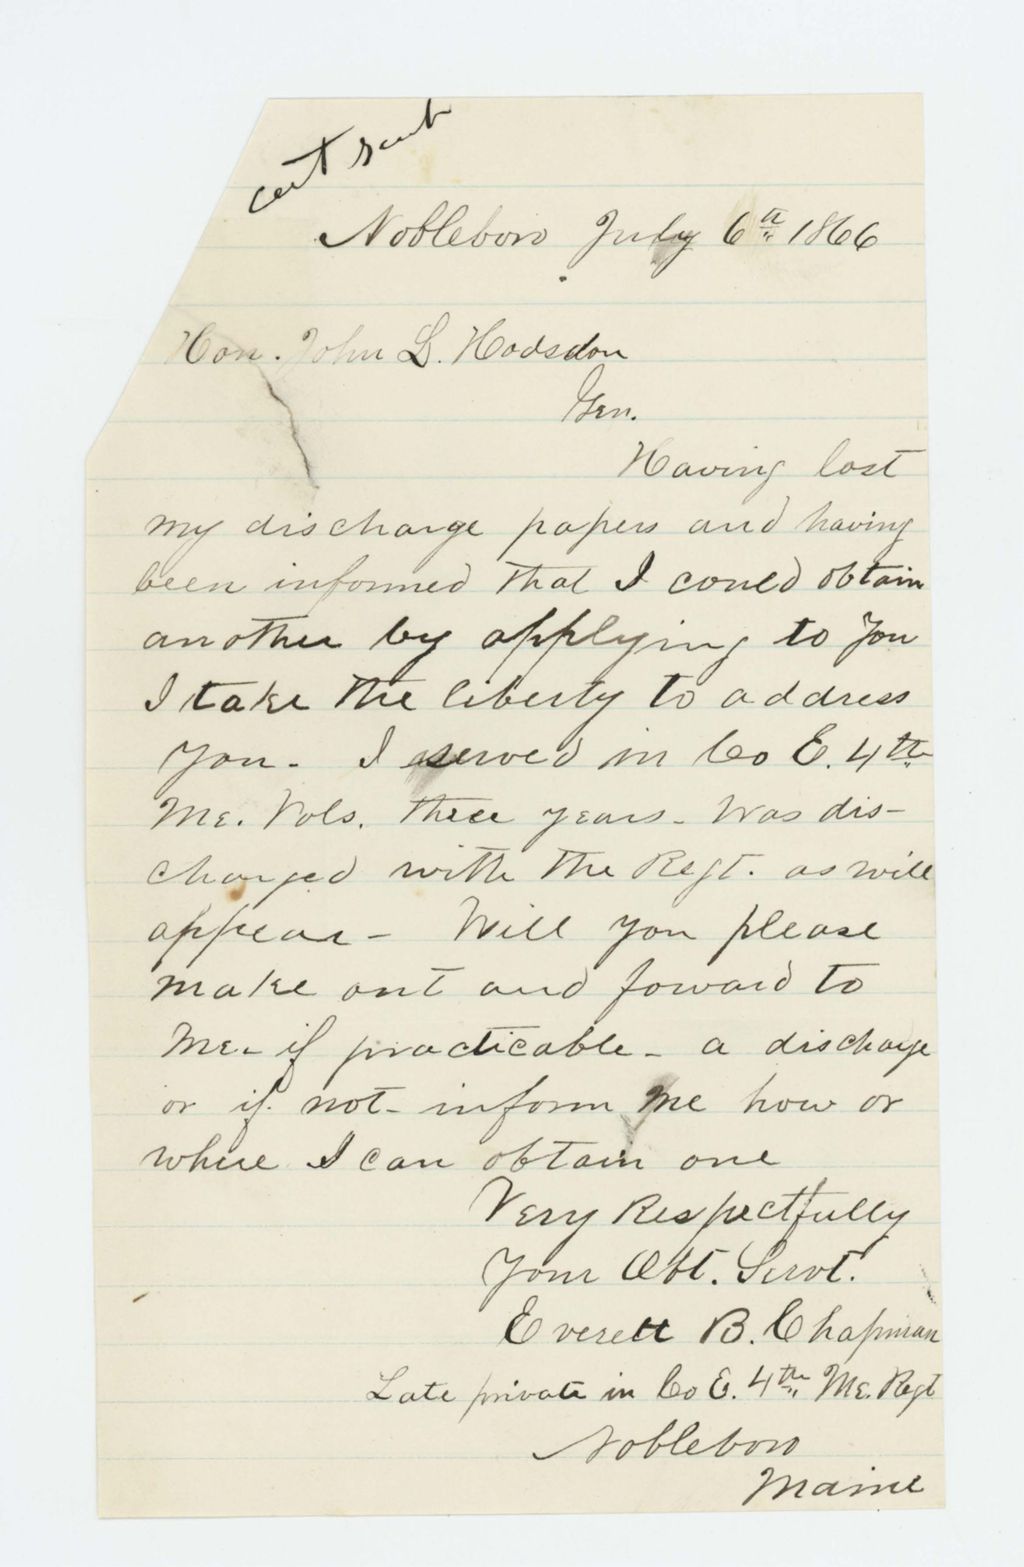 cert sent
Nobleboro July 6th 1866
Hon. John L. Hodsdon
Gen.
Having lost
my discharge papers and having
been informed that I could obtain
another by applying to you
I take the liberty to address
you - I served in Co E. 4th
Me. Vols. three years - Was dis-
charged with the Regt. as will
appear - Will you please
make out and forward to
me - if practicable - a discharge
or if not - inform me how or
where I can obtain one
Very Respectfully
Your Obt. Servt.
Everett B. Chapman
Late private in Co E. 4th Me. Regt
Nobleboro
Maine